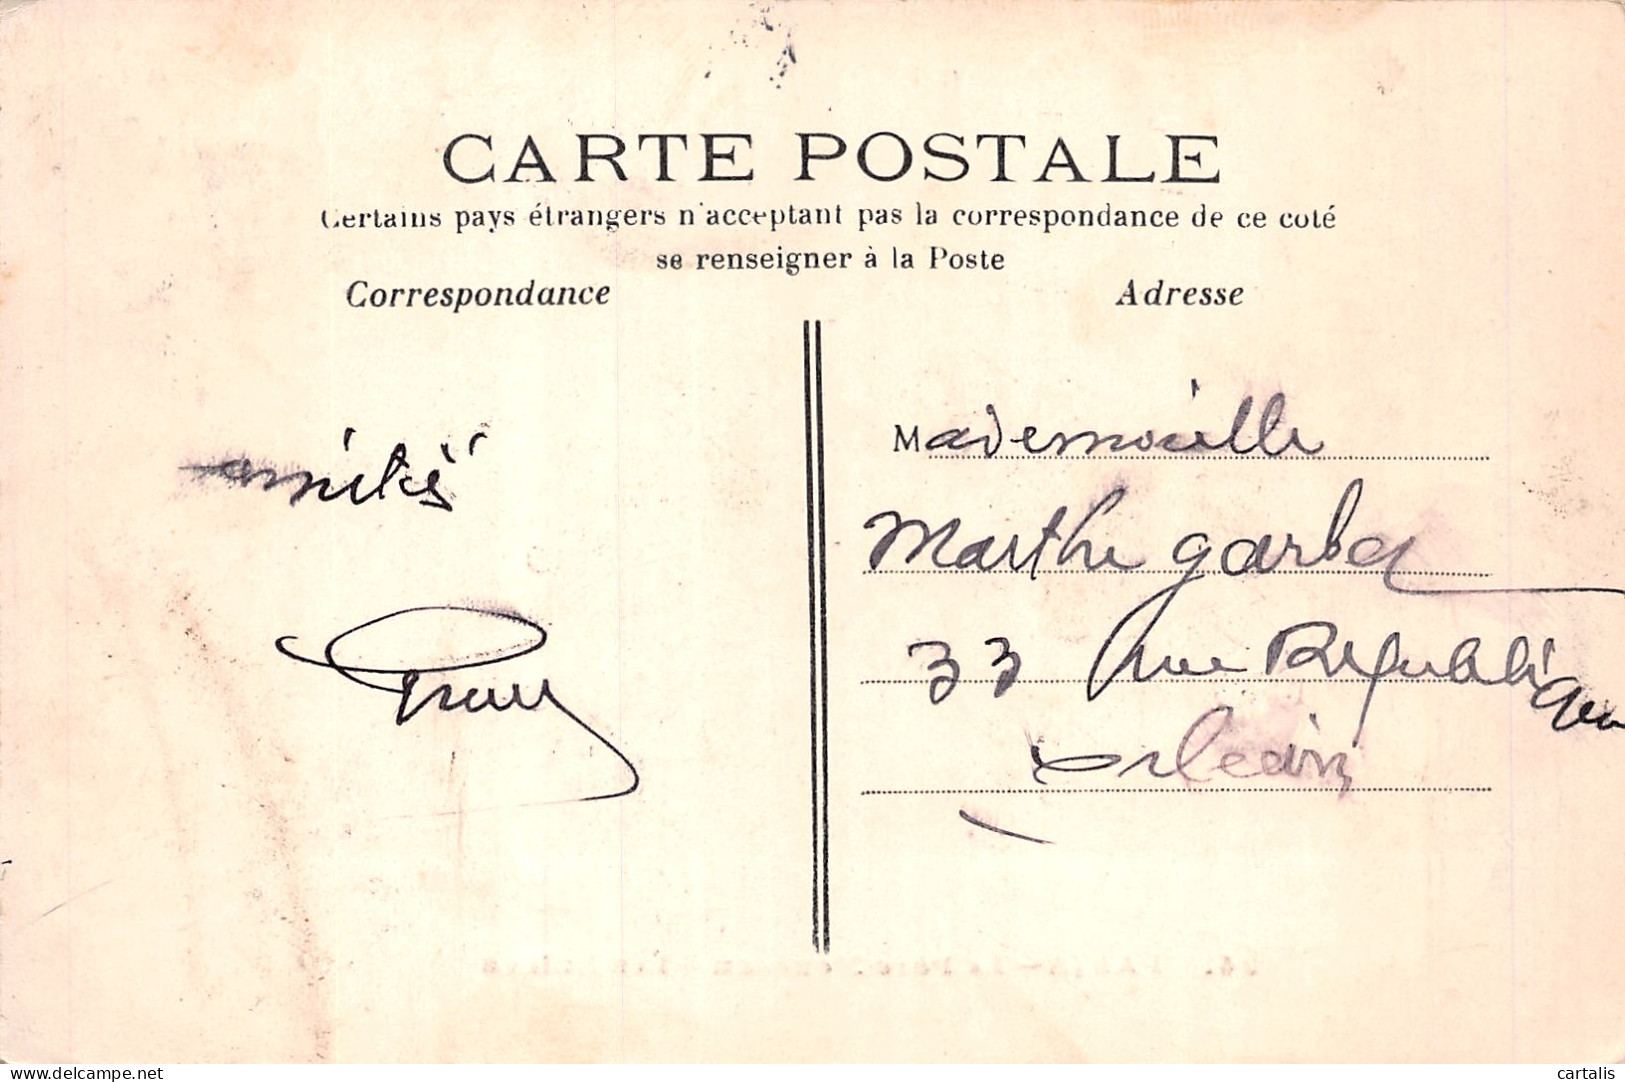 CARTE POSTALE
Certains pays étrangers n'acceptant pas la correspondance de ce coté
se renseigner à la Poste
Correspondance
Adresse
amitiés
Mademoiselle
Marthe
33 rue République
Orléans
www.delcampe.net
cartalis